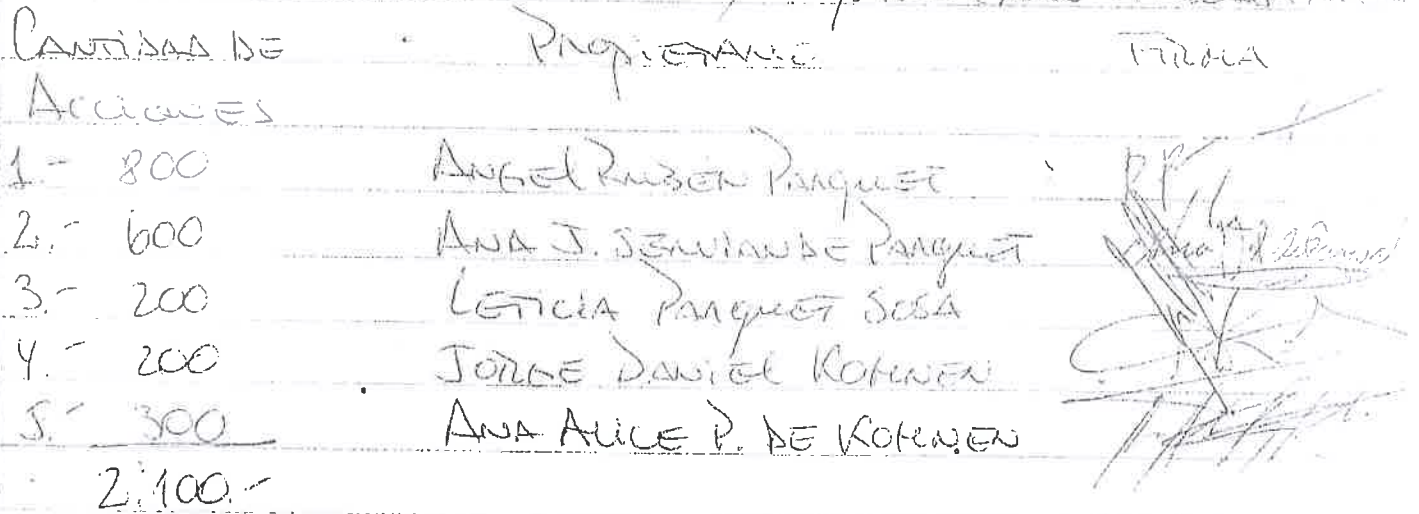 CANTIDAD DE PROPIETARIO FIRMA
ACCIONES
1.- 800 ANGEL RUBEN PARQUET
2.- 600 ANA J. SERVIAN DE PARQUET
3.- 200 LETICIA PARQUET SOSA
4.- 200 JORGE DANIEL KOHNEN
5.- 300 ANA ALICE P. DE KOHNEN
2.100.-